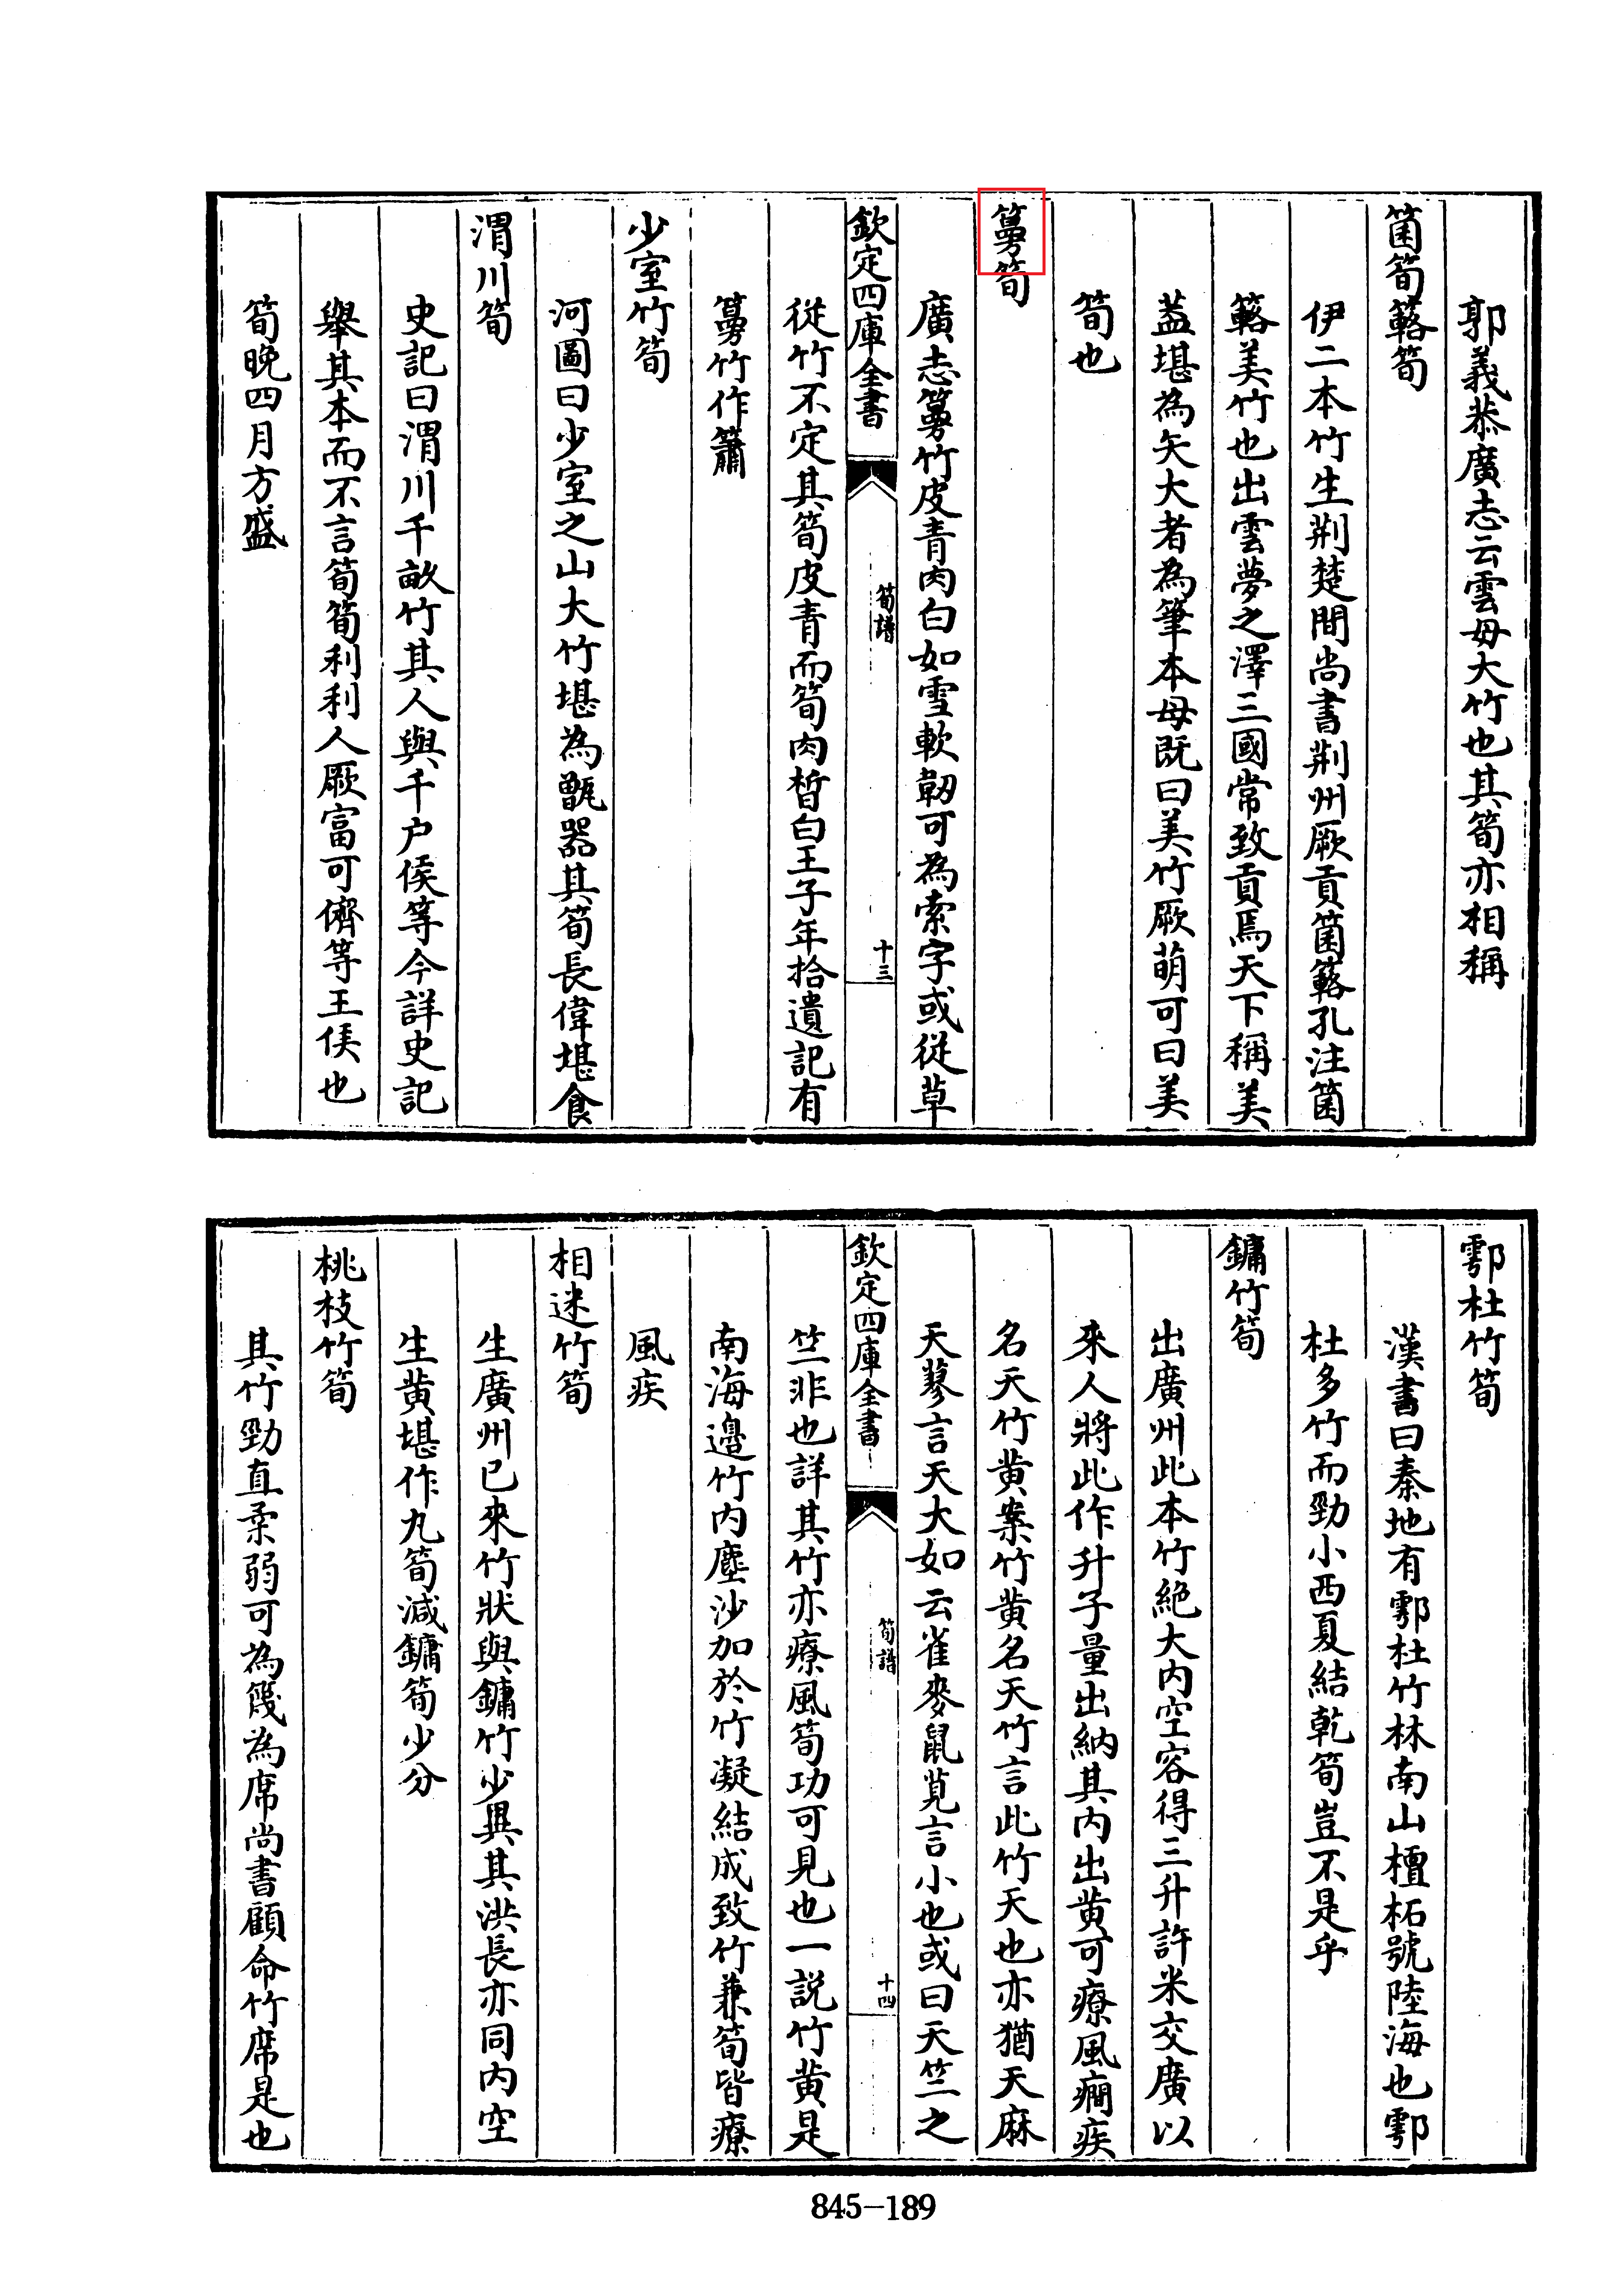 郭義恭廣志云雲母大竹也其筍亦相稱
箘筍簵筍
伊二本竹生荆楚間尚書荆州厥貢箘簵孔注箘
簵美竹也出雲夢之澤三國常致貢焉天下稱美
蓋堪為矢大者為筆本母既曰美竹厥萌可曰美
筍也
𥲑筍
廣志𥲑竹皮青肉白如雪軟韌可為索字或從草
欽定四庫全書
筍譜
十三
從竹不定其筍皮青而筍肉晳白王子年拾遺記有
𥲑竹作簫
少室竹筍
河圖曰少室之山大竹堪為甑器其筍長偉堪食
渭川筍
史記曰渭川千畝竹其人與千户侯等今詳史記
舉其本而不言筍筍利利人厥富可儕等王侯也
筍晚四月方盛
鄠杜竹筍
漢書曰秦地有鄠杜竹林南山檀柘號陸海也鄠
杜多竹而勁小西夏結乾筍豈不是乎
鏞竹筍
出廣州此本竹絶大内空容得三升許米交廣以
來人將此作升子量出納其内出黄可療風癇疾
名天竹黄案竹黄名天竹言此竹天也亦猶天麻
天蓼言天大如云雀麥鼠莧言小也或曰天竺之
欽定四庫全書
筍譜
十四
竺非也詳其竹亦療風筍功可見也一説竹黄是
南海邊竹内塵沙加於竹凝結成致竹兼筍皆療
風疾
相迷竹筍
生廣州已來竹狀與鏞竹少異其洪長亦同内空
生黄堪作丸筍減鏞筍少分
桃枝竹筍
其竹勁直柔弱可為篾為席尚書顧命竹席是也
845-189